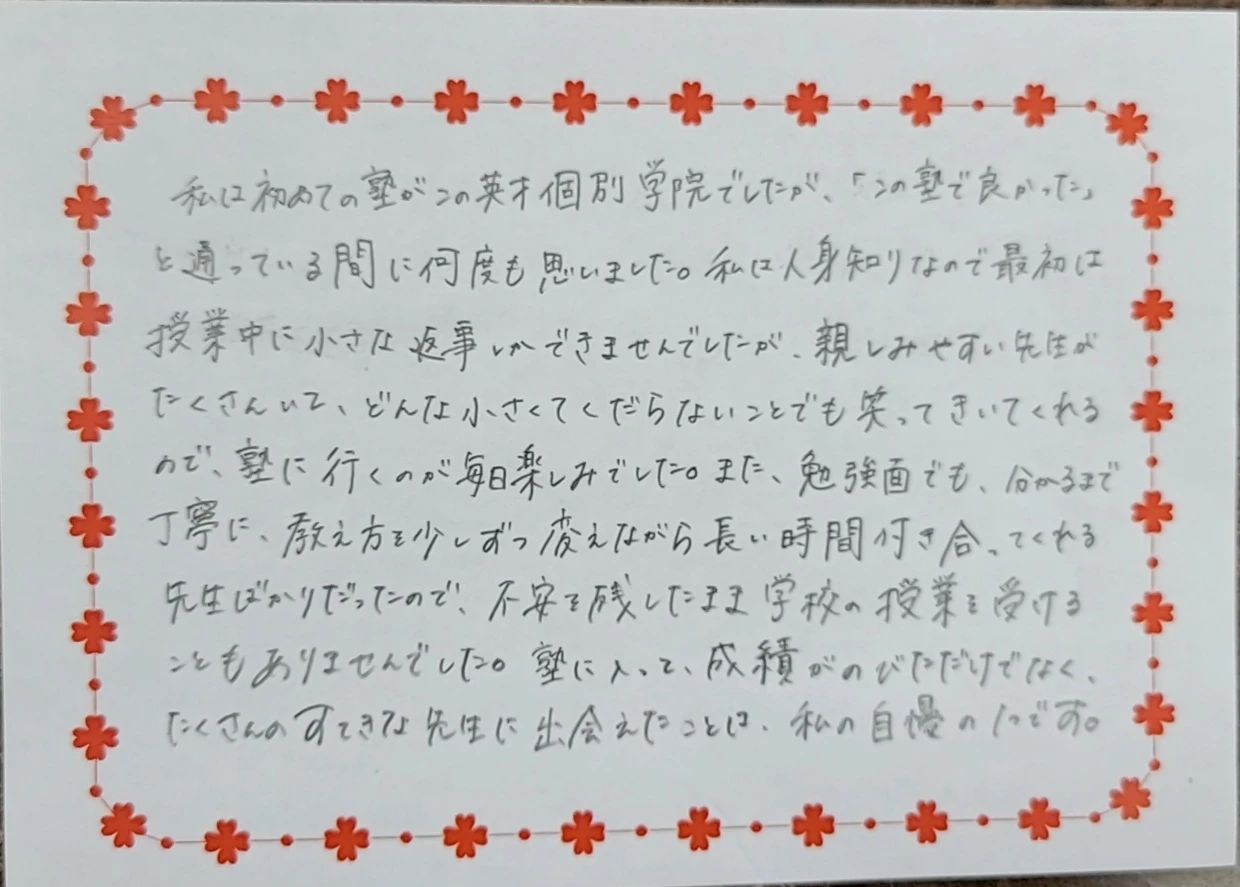 私は初めての塾がこの英才個別学院でしたが、「この塾で良かった」
と通っている間に何度も思いました。私は人身知りなので最初は
授業中に小さな返事しかできませんでしたが、親しみやすい先生が
たくさんいて、どんな小さくてくだらないことでも笑ってきいてくれる
ので、塾に行くのが毎日楽しみでした。また、勉強面でも、分かるまで
丁寧に、教え方を少しずつ変えながら長い時間付き合ってくれる
先生ばかりだったので、不安を残したまま学校の授業を受ける
こともありませんでした。塾に入って、成績がのびただけでなく、
たくさんのすてきな先生に出会えたことは、私の自慢の1つです。